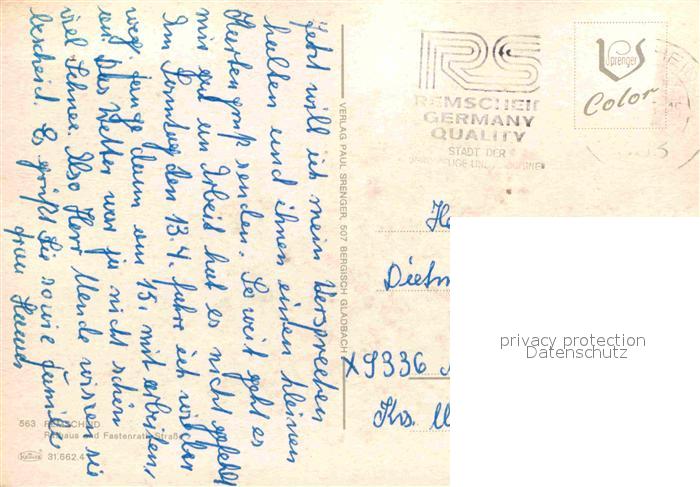 Jetzt will ich mein Versprechen
halten und ihnen einen kleinen
Kartengruß senden. So weit geht es
mir gut un Arbeit hat es nicht gefehlt
Am Sonntag den 13.4. fahre ich wieder
weg, fange dann am 15. mit arbeiten,
an. Das Wetter war ja nicht schön
viel Schnee. Also Herr Mende wissen sie
bescheid. Es grüßt Sie sowie Familie
Frau
VERLAG PAUL SRENGER, 507 BERGISCH GLADBACH
563 REMSCHEID
Rathaus und Fastenrath-Straße
Krüger 31.662.4
RS
REMSCHEID
GERMANY
QUALITY
STADT DER
Sprenger
Color
He
Dietm
X9336
Krs.
privacy protection
Datenschutz